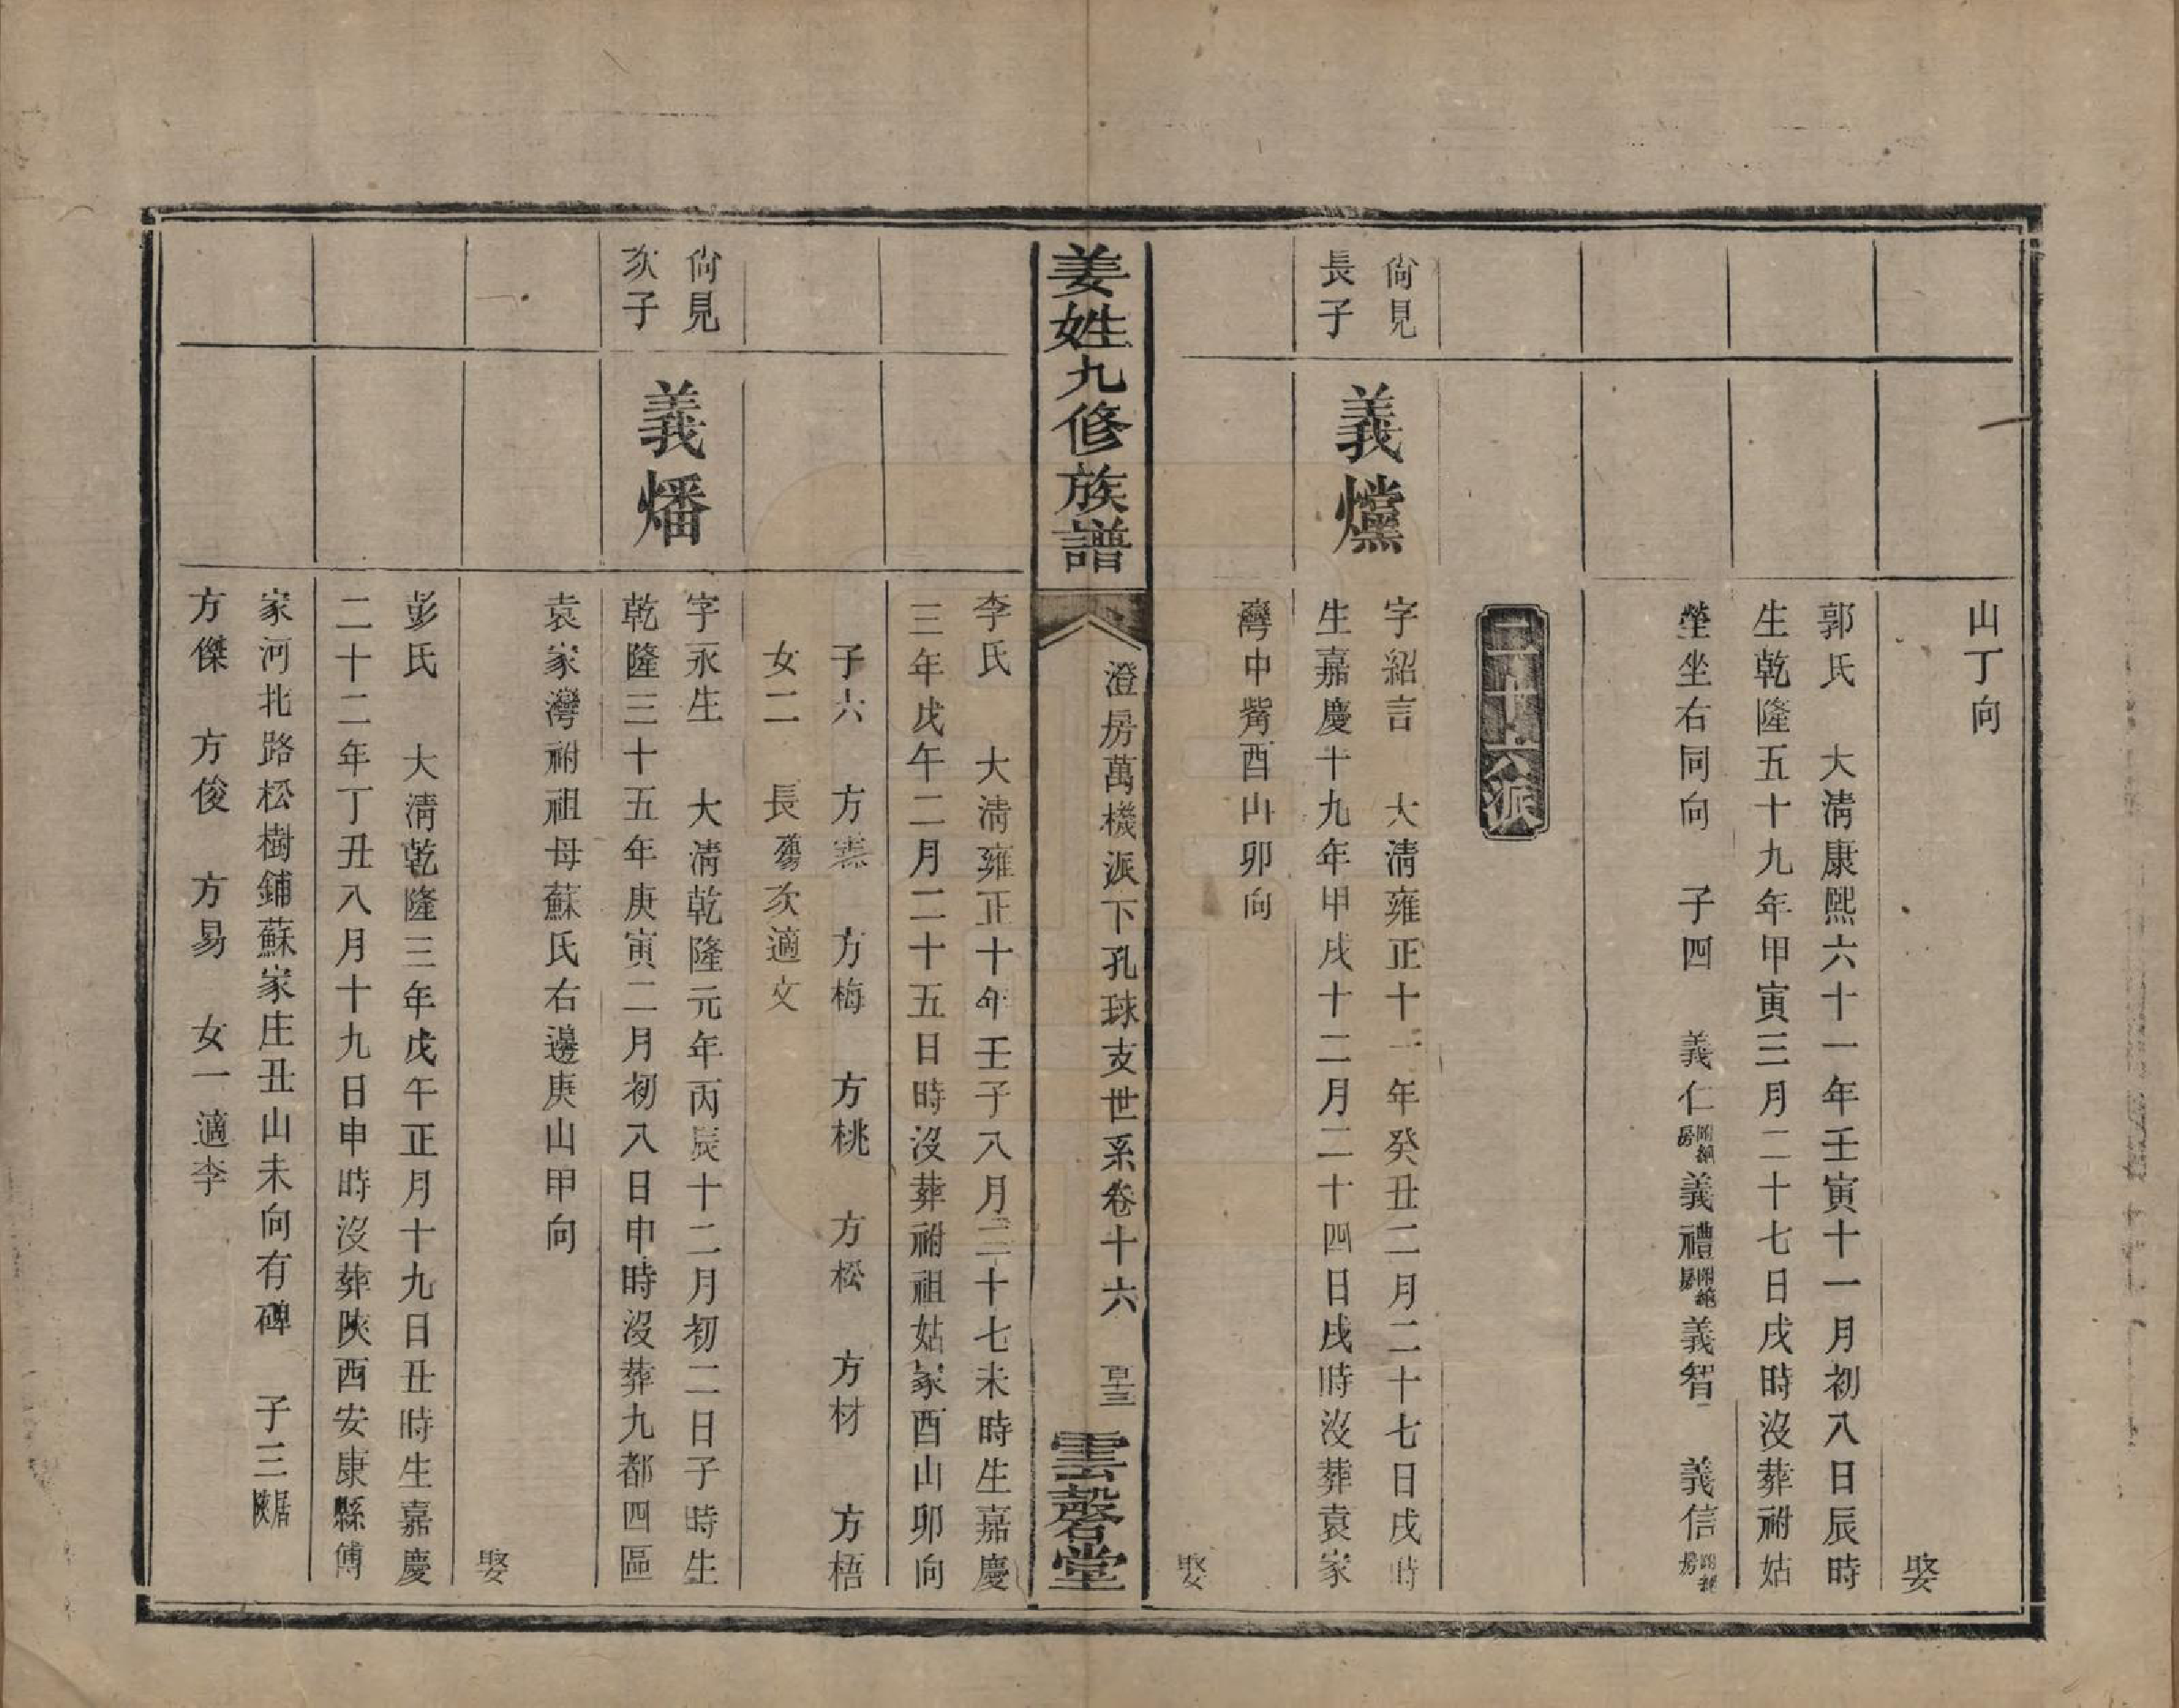 山丁向
娶
郭氏　大淸康熙六十一年壬寅十一月初八日辰時
生乾隆五十九年甲寅三月二十七日戌時沒葬祔姑
塋坐右同向　子四　義仁 義禮 義智　義信
二十六派
尙見
長子
義爣
字紹言　大淸雍正十一年癸丑二月二十七日戌時
生嘉慶十九年甲戌十二月二十四日戌時沒葬袁家
灣中觜酉山卯向
娶
姜姓九修族譜
澄房萬機派下孔球支世系卷十六
雲磬堂
李氏　大淸雍正十年壬子八月二十七未時生嘉慶
三年戊午二月二十五日時沒葬祔祖姑冢酉山卯向
子六　方　方梅　方桃　方松　方材　方梧
女二　長殤次適文
尙見
次子
義燔
字永生　大淸乾隆元年丙辰十二月初二日子時生
乾隆三十五年庚寅二月初八日申時沒葬九都四區
袁家灣祔祖母蘇氏右邊庚山甲向
娶
彭氏　大淸乾隆三年戊午正月十九日丑時生嘉慶
二十二年丁丑八月十九日申時沒葬陝西安康縣傅
家河北路松樹鋪蘇家庄丑山未向有碑　子三居陝
方傑　方俊　方易　女一適李